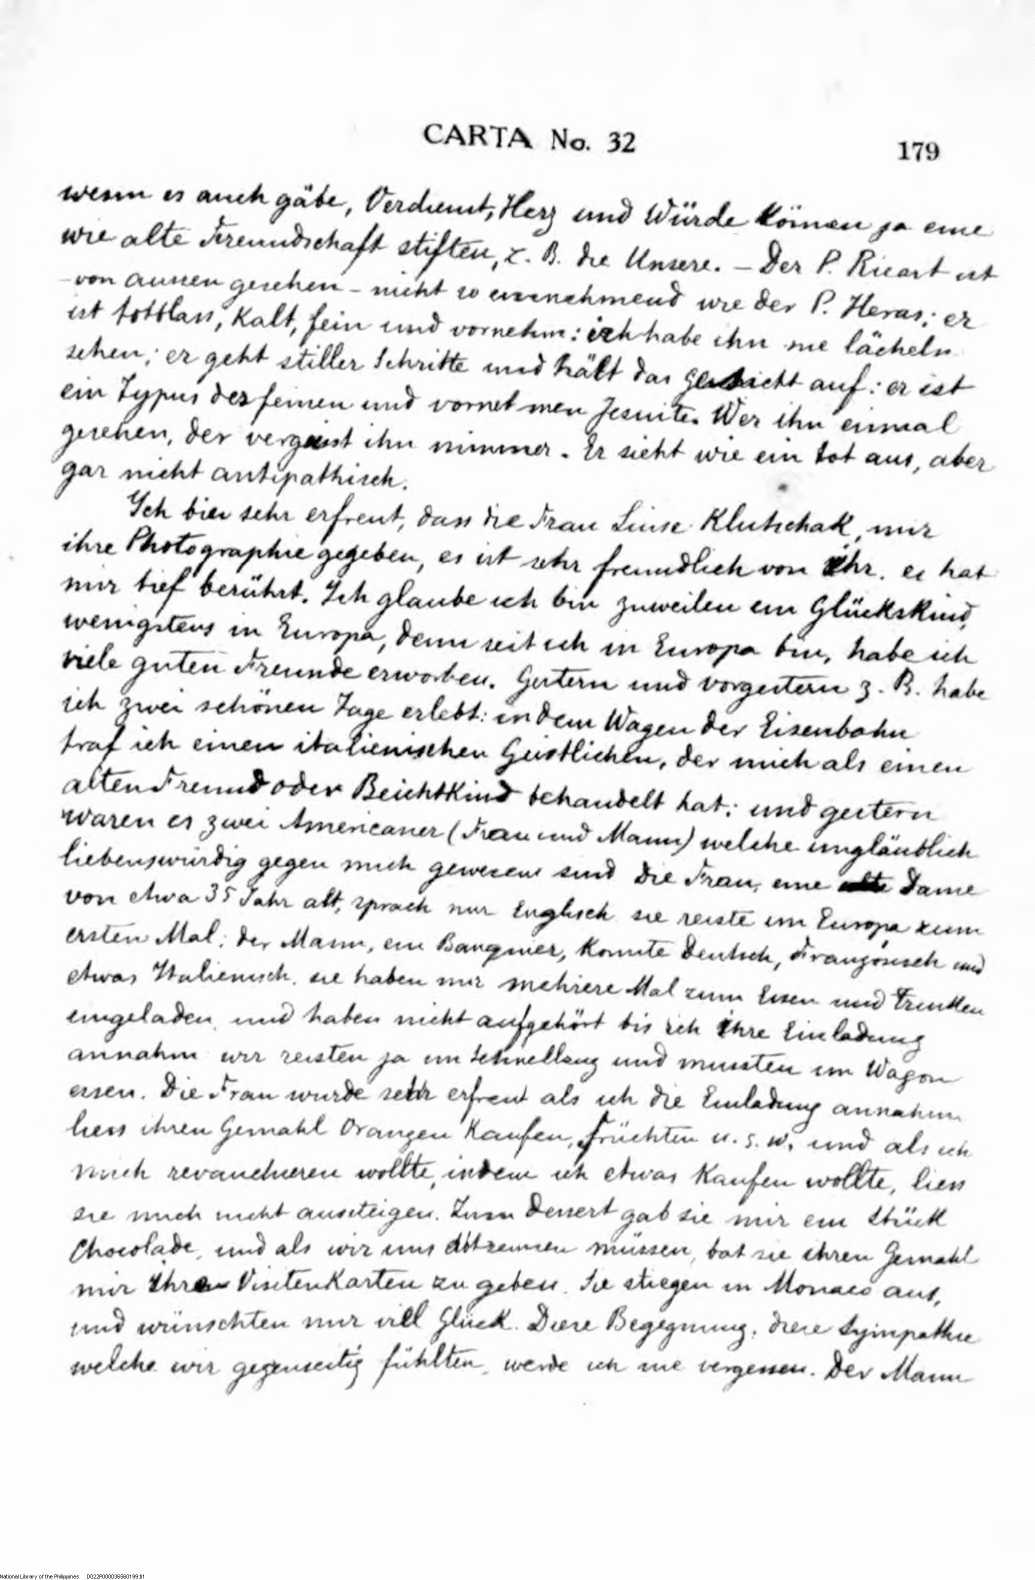 CARTA No. 32
179
wenn es auch gäbe, Verdienst, Herz und Würde können ja eine
wie alte Freundschaft stiften, z. B. die Unsere. – Der P. Ricart ist
– von aussen gesehen – nicht so einnehmend wie der P. Heras; er
ist totblass, kalt, fein und vornehm: ich habe ihn nie lächeln
sehen; er geht stiller Schritte und hält das Gesicht auf: er ist
ein Typus des feinen und vornehmen Jesuiten. Wer ihn einmal
gesehen, der vergisst ihn nimmer. Er sieht wie ein tot aus, aber
gar nicht antipathisch.
Ich bin sehr erfreut, dass die Frau Luise Klutschak, mir
ihre Photographie gegeben, es ist sehr freundlich von ihr. es hat
mir tief berührt. Ich glaube ich bin zuweilen ein Glückskind,
wenigstens in Europa, denn seit ich in Europa bin, habe ich
viele guten Freunde erworben. Gestern und vorgestern z. B. habe
ich zwei schönen Tage erlebt: in dem Wagen der Eisenbahn
traf ich einen italienischen Geistlichen, der mich als einen
alten Freund oder Beichtkind behandelt hat; und gestern
waren es zwei Americaner (Frau und Mann) welche ungläublich
liebenswürdig gegen mich gewesen sind Die Frau, eine Dame
von etwa 35 Jahr alt, sprach nur Englisch sie reiste im Europa zum
ersten Mal; der Mann, ein Banquier, konnte Deutsch, Französisch und
etwas Italienisch. sie haben mir mehrere Mal zum Essen und Trinken
eingeladen und haben nicht aufgehört bis ich ihre Einladung
annahm wir reisten ja im Schnellzug und mussten im Wagon
essen. Die Frau wurde sehr erfreut als ich die Einladung annahm
liess ihren Gemahl Orangen kaufen, Früchten u. s. w. und als ich
mich revanchieren wollte, indem ich etwas kaufen wollte, liess
sie mich nicht aussteigen. Zum Dessert gab sie mir ein Stück
Chocolade, und als wir uns abtrennen müssen, bat sie ihren Gemahl
mir ihre Visitenkarten zu geben. Sie stiegen in Monaco aus,
und wünschten mir viel Glück. Diese Begegnung, diese Sympathie
welche wir gegenseitig fühlten, werde ich nie vergessen. Der Mann
National Library of the Philippines